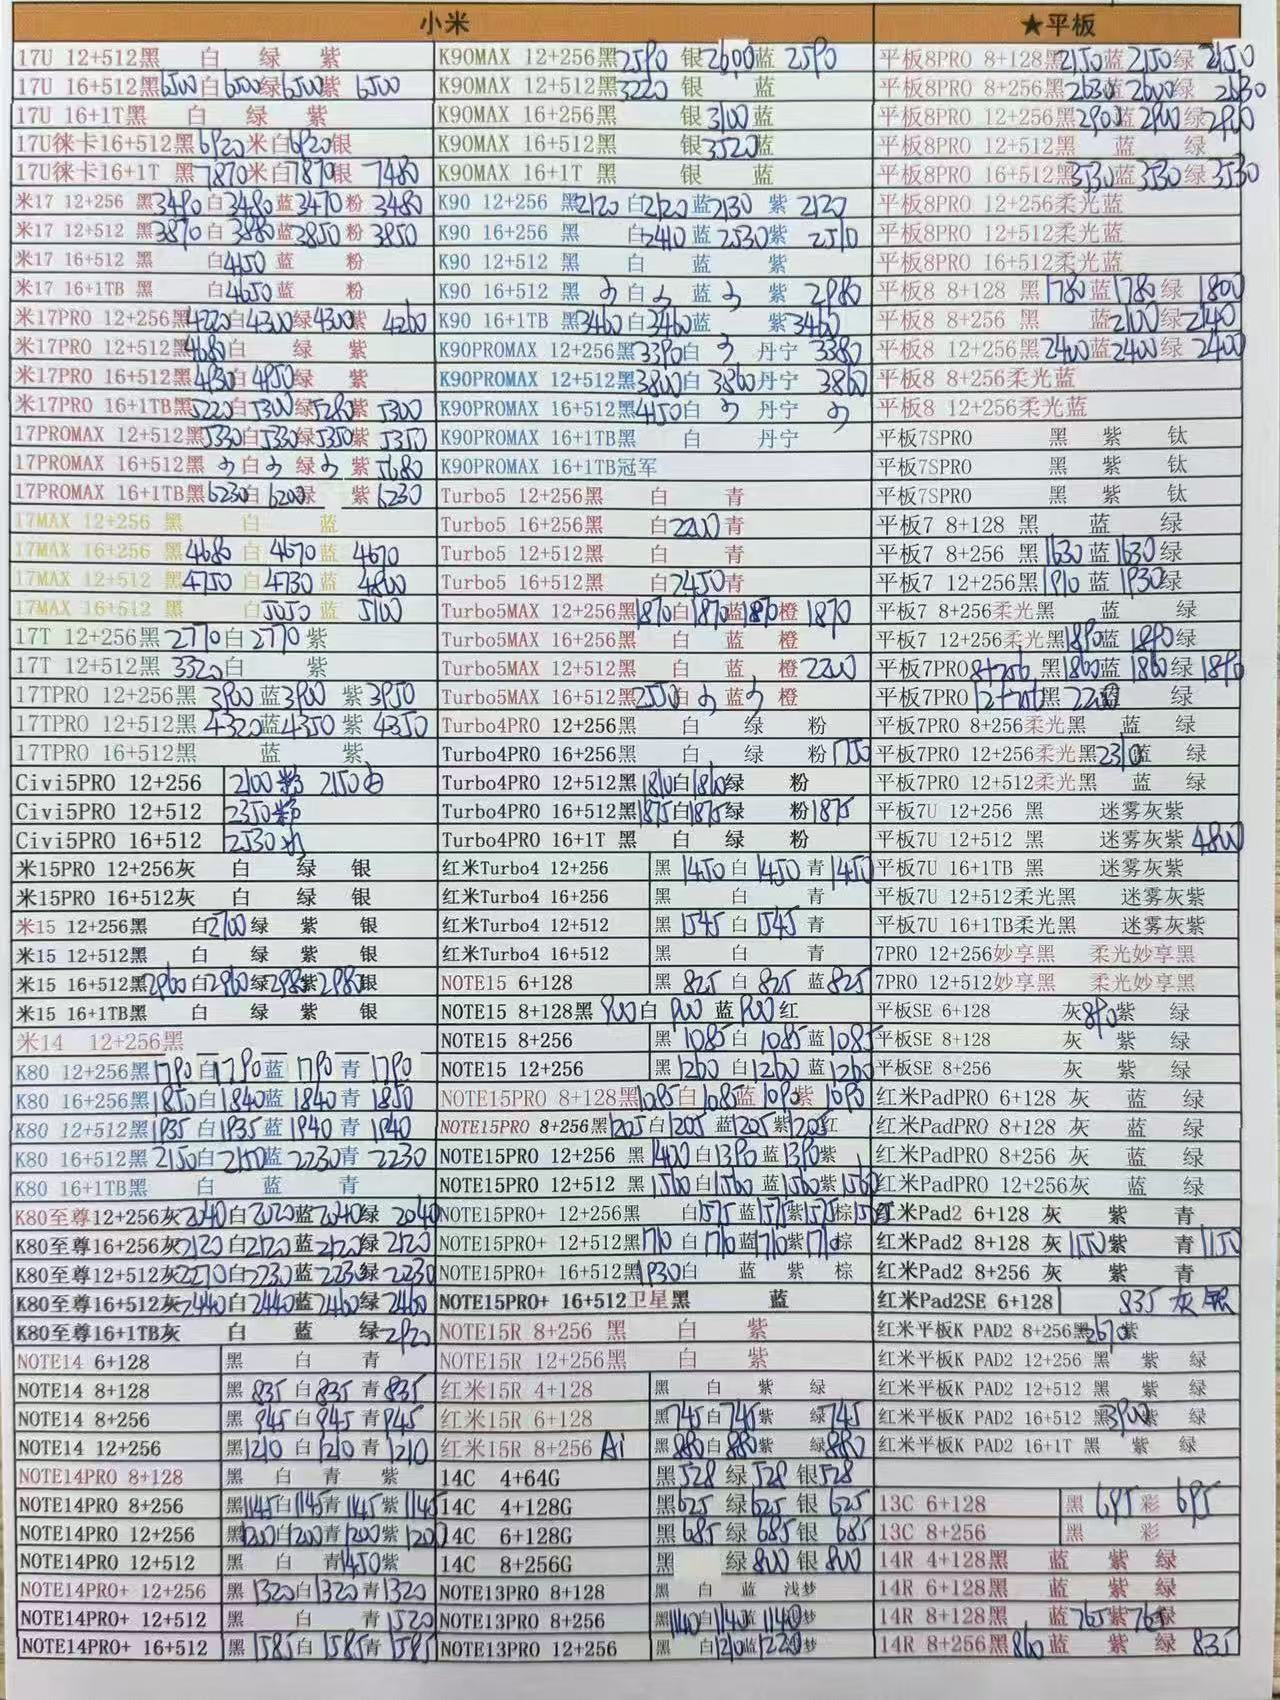 小米
17U 12+512黑 白 绿 紫
17U 16+512黑6500白6500绿6500紫 6500
17U 16+1T黑 白 绿 紫
17U徕卡16+512黑6920米白6920银
17U徕卡16+1T 黑7870米白7870银 7480
米17 12+256 黑3490白3480蓝3470粉 3480
米17 12+512 黑3870白3880蓝3850粉 3850
米17 16+512 黑 白4150蓝 粉
米17 16+1TB 黑 白4650蓝 粉
米17PRO 12+256黑4220白4300绿4300紫 4260
米17PRO 12+512黑4680白 绿 紫
米17PRO 16+512黑4930白4950绿 紫
米17PRO 16+1TB黑5220白5300绿5280紫5300
17PROMAX 12+512黑5330白5330绿5350紫5350
17PROMAX 16+512黑 白 绿 紫5680
17PROMAX 16+1TB黑6230白6200绿 紫6230
17MAX 12+256 黑 白 蓝
17MAX 16+256 黑4680白4670蓝 4670
17MAX 12+512 黑4750白4730蓝 4800
17MAX 16+512 黑 白5050蓝 5100
17T 12+256黑2770白2770紫
17T 12+512黑3320白 紫
17TPRO 12+256黑3900蓝3900 紫3950
17TPRO 12+512黑4320蓝4350 紫4350
17TPRO 16+512黑 蓝 紫
Civi5PRO 12+256 2100粉 2150白
Civi5PRO 12+512 2350粉
Civi5PRO 16+512 2530
米15PRO 12+256灰 白 绿 银
米15PRO 16+512灰 白 绿 银
米15 12+256黑 白2700绿 紫 银
米15 12+512黑 白 绿 紫 银
米15 16+512黑2960白2960绿2980紫2980银
米15 16+1TB黑 白 绿 紫 银
米14 12+256黑
K80 12+256黑1790白1790蓝 1790青 1790
K80 16+256黑1850白1840蓝 1840青 1850
K80 12+512黑1935白1935蓝 1940青 1940
K80 16+512黑2150白2150蓝 2230青 2230
K80 16+1TB黑 白 蓝 青
K80至尊12+256灰2040白2020蓝2040绿 2040
K80至尊16+256灰2120白2120蓝2120绿 2120
K80至尊12+512灰2270白2230蓝2230绿2230
K80至尊16+512灰2440白2440蓝2460绿 2460
K80至尊16+1TB灰 白 蓝 绿2920
NOTE14 6+128 黑 白 青
NOTE14 8+128 黑 835白 835青835
NOTE14 8+256 黑 945白 945青945
NOTE14 12+256 黑1210白1210青1210
NOTE14PRO 8+128 黑 白 青 紫
NOTE14PRO 8+256 黑1145白1145青1145紫1145
NOTE14PRO 12+256 黑1200白1200青1200紫1200
NOTE14PRO 12+512 黑 白 青1450紫
NOTE14PRO+ 12+256 黑1320白1320青1320
NOTE14PRO+ 12+512 黑 白 青1520
NOTE14PRO+ 16+512 黑1585白1585青1585
K90MAX 12+256黑2590 银2600蓝 2590
K90MAX 12+512黑3220 银 蓝
K90MAX 16+256黑 银3100蓝
K90MAX 16+512黑 银3520蓝
K90MAX 16+1T 黑 银 蓝
K90 12+256 黑2120白2120蓝2130 紫 2120
K90 16+256 黑 白2410蓝2530紫 2510
K90 12+512 黑 白 蓝 紫
K90 16+512 黑 白 蓝 紫 2980
K90 16+1TB 黑3460白3460蓝 紫3460
K90PROMAX 12+256黑3390白 丹宁 3380
K90PROMAX 12+512黑3800白3860丹宁 3860
K90PROMAX 16+512黑4150白 丹宁
K90PROMAX 16+1TB黑 白 丹宁
K90PROMAX 16+1TB冠军
Turbo5 12+256黑 白 青
Turbo5 16+256黑 白2200青
Turbo5 12+512黑 白 青
Turbo5 16+512黑 白2450青
Turbo5MAX 12+256黑1870白1870蓝1870橙 1870
Turbo5MAX 16+256黑 白 蓝 橙
Turbo5MAX 12+512黑 白 蓝 橙2200
Turbo5MAX 16+512黑2550白 蓝 橙
Turbo4PRO 12+256黑 白 绿 粉
Turbo4PRO 16+256黑 白 绿 粉1750
Turbo4PRO 12+512黑1810白1810绿 粉
Turbo4PRO 16+512黑1875白1875绿 粉1875
Turbo4PRO 16+1T 黑 白 绿 粉
红米Turbo4 12+256 黑1450白1450青1450
红米Turbo4 16+256 黑 白 青
红米Turbo4 12+512 黑1545白1545青
红米Turbo4 16+512 黑 白 青
NOTE15 6+128 黑 825白 825蓝825
NOTE15 8+128黑900白 900蓝900红
NOTE15 8+256 黑1085白1085蓝1085
NOTE15 12+256 黑1260白1260蓝1260
NOTE15PRO 8+128黑1085白1085蓝1090紫1090
NOTE15PRO 8+256黑1205白1205蓝1205紫1205红
NOTE15PRO 12+256 黑1400白1390蓝1390紫
NOTE15PRO 12+512 黑1560白1560蓝1560紫1560
NOTE15PRO+ 12+256黑 白1575蓝1575紫1575棕
NOTE15PRO+ 12+512黑1710白1710蓝1710紫1710棕
NOTE15PRO+ 16+512黑1930白 蓝 紫 棕
NOTE15PRO+ 16+512卫星黑 蓝
NOTE15R 8+256 黑 白 紫
NOTE15R 12+256黑 白 紫
红米15R 4+128 黑 白 紫 绿
红米15R 6+128 黑745白745紫 绿745
红米15R 8+256 Ai 黑880白880紫 绿880
14C 4+64G 黑528绿528银528
14C 4+128G 黑625绿625银 625
14C 6+128G 黑685绿685银 685
14C 8+256G 黑 绿800银 800
NOTE13PRO 8+128 黑 白 蓝 浅梦
NOTE13PRO 8+256 黑1140白1140蓝1140梦
NOTE13PRO 12+256 黑 白1210蓝1220梦
★平板
平板8PRO 8+128黑2150蓝2150绿 2150
平板8PRO 8+256黑2630蓝2600绿 2630
平板8PRO 12+256黑2900蓝2900绿2900
平板8PRO 12+512黑 蓝 绿
平板8PRO 16+512黑3530蓝3530绿3530
平板8PRO 12+256柔光蓝
平板8PRO 12+512柔光蓝
平板8PRO 16+512柔光蓝
平板8 8+128 黑1780蓝1780绿 1800
平板8 8+256 黑 蓝2100绿2100
平板8 12+256黑2400蓝2400绿2400
平板8 8+256柔光蓝
平板8 12+256柔光蓝
平板7SPRO 黑 紫 钛
平板7SPRO 黑 紫 钛
平板7SPRO 黑 紫 钛
平板7 8+128 黑 蓝 绿
平板7 8+256 黑1630蓝1630绿
平板7 12+256黑1910蓝1930绿
平板7 8+256柔光黑 蓝 绿
平板7 12+256柔光黑1890蓝1890绿
平板7PRO8+256 黑1860蓝1860绿1890
平板7PRO 黑2200蓝 绿
平板7PRO 8+256柔光黑 蓝 绿
平板7PRO 12+256柔光黑2310蓝 绿
平板7PRO 12+512柔光黑 蓝 绿
平板7U 12+256 黑 迷雾灰紫
平板7U 12+512 黑 迷雾灰紫4800
平板7U 16+1TB 黑 迷雾灰紫
平板7U 12+512柔光黑 迷雾灰紫
平板7U 16+1TB柔光黑 迷雾灰紫
7PRO 12+256妙享黑 柔光妙享黑
7PRO 12+512妙享黑 柔光妙享黑
平板SE 6+128 灰890紫 绿
平板SE 8+128 灰 紫 绿
平板SE 8+256 灰 紫 绿
红米PadPRO 6+128 灰 蓝 绿
红米PadPRO 8+128 灰 蓝 绿
红米PadPRO 8+256 灰 蓝 绿
红米PadPRO 12+256灰 蓝 绿
红米Pad2 6+128 灰 紫 青
红米Pad2 8+128 灰1150紫 青1150
红米Pad2 8+256 灰 紫 青
红米Pad2SE 6+128 835 灰 银
红米平板K PAD2 8+256黑2670紫
红米平板K PAD2 12+256 黑 紫 绿
红米平板K PAD2 12+512 黑 紫 绿
红米平板K PAD2 16+512 黑3900紫 绿
红米平板K PAD2 16+1T 黑 紫 绿
13C 6+128 黑 695彩 695
13C 8+256 黑 彩
14R 4+128黑 蓝 紫 绿
14R 6+128黑 蓝 紫 绿
14R 8+128黑 蓝765紫765绿
14R 8+256黑860蓝 紫 绿 835